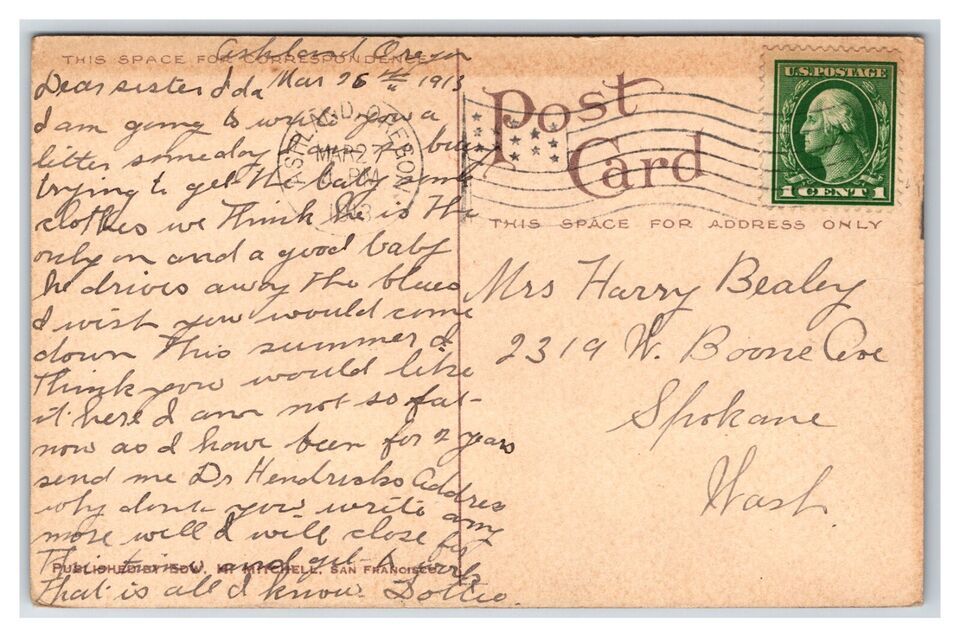 THIS SPACE FOR CORRESPONDENCE
Ashland Oregon
Mar 26th 1913
Dear sister Ida
I am going to write you a
letter someday am so busy
trying to get the baby some
clothes we think he is the
only on and a good baby
he drives away the blues
I wish you would come
down this summer I
think you would like
it here I am not so fat
now as I have been for 2 years
send me Dr Hendricks Address
why dont you write any
more well I will close for
This time and get to work
that is all I know. Dottie.
PUBLISHED BY EDW. H. MITCHELL, SAN FRANCISCO
ASHLAND, OREGON
MAR 27
PM
1913
Post
Card
U.S. POSTAGE
1 CENT 1
THIS SPACE FOR ADDRESS ONLY
Mrs Harry Bealey
2319 W. Boone Ave
Spokane
Wash